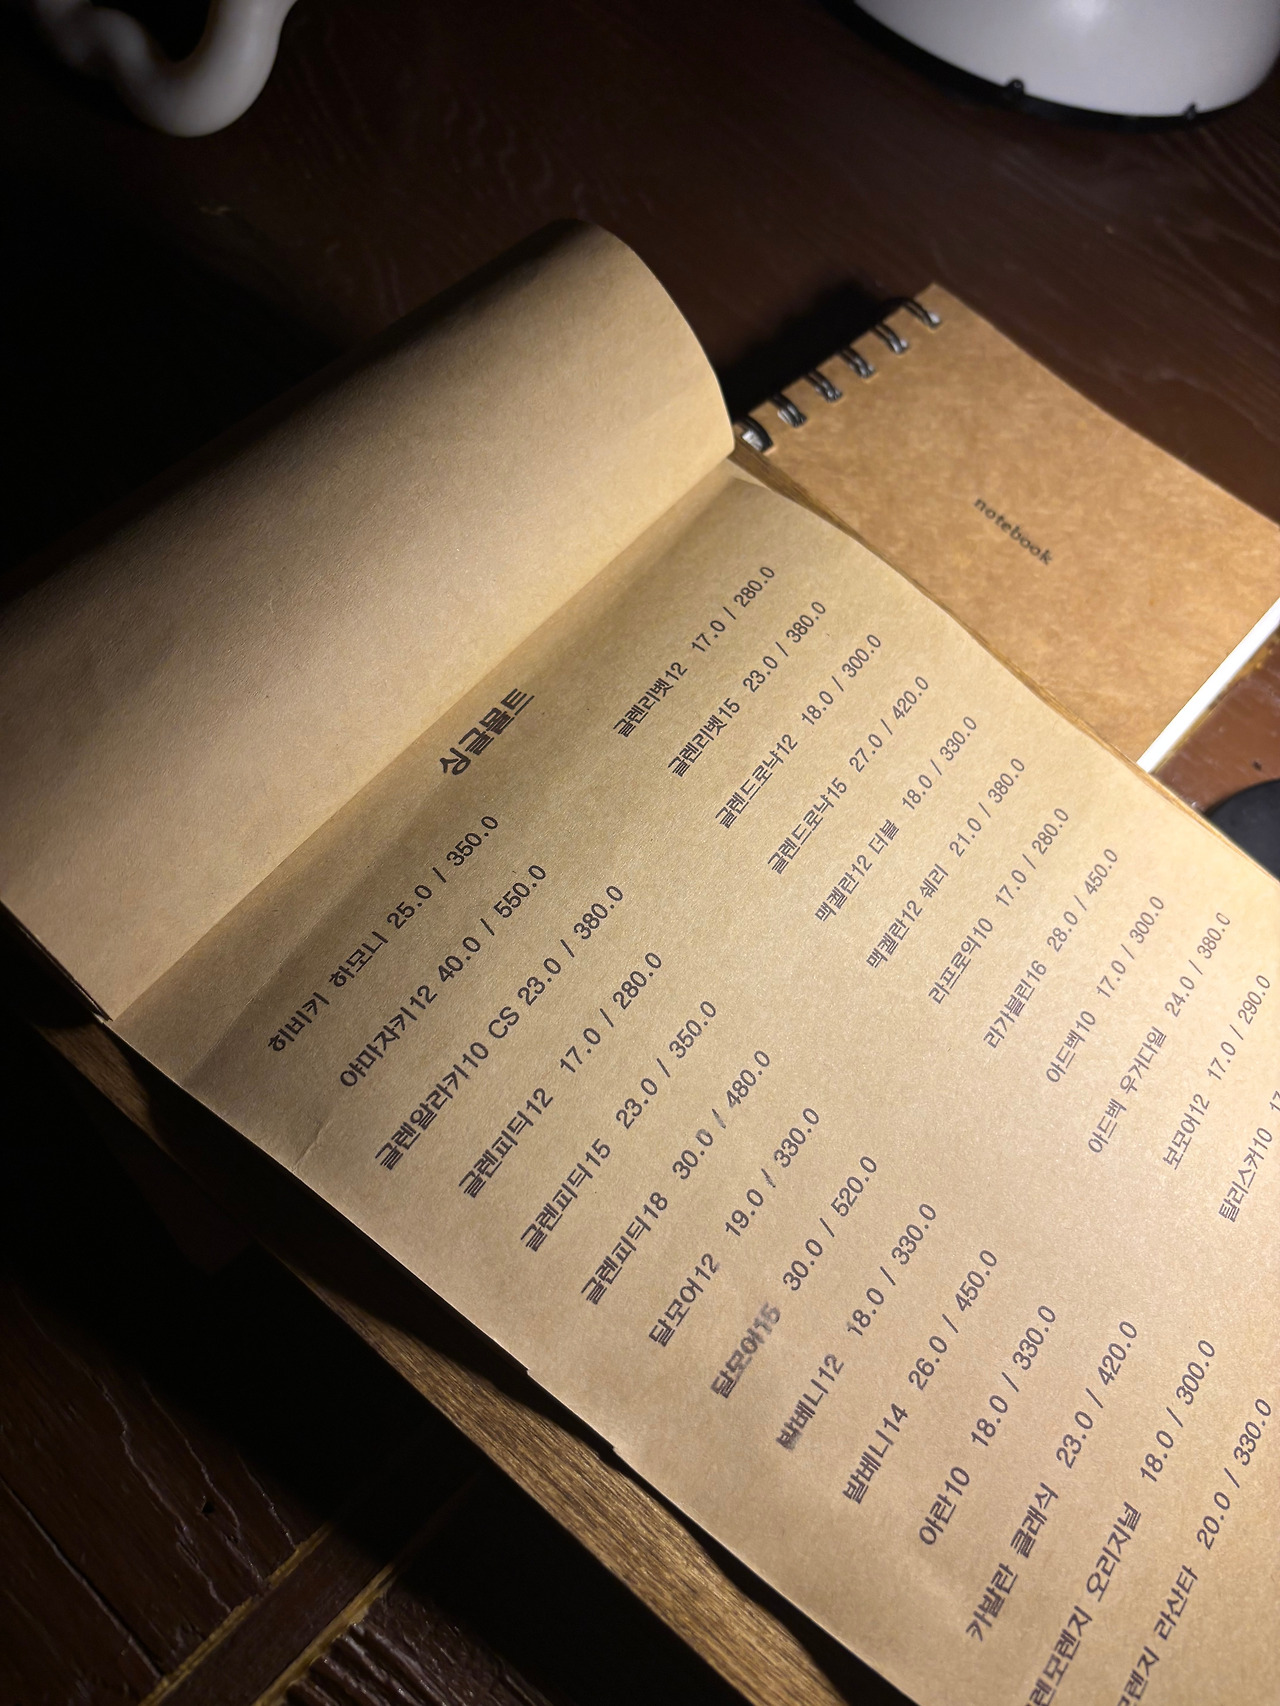 싱글몰트
히비키 하모니 25.0 / 350.0
야마자키12 40.0 / 550.0
글렌알라키10 CS 23.0 / 380.0
글렌피딕12 17.0 / 280.0
글렌피딕15 23.0 / 350.0
글렌피딕18 30.0 / 480.0
달모어12 19.0 / 330.0
달모어15 30.0 / 520.0
발베니12 18.0 / 330.0
발베니14 26.0 / 450.0
아란10 18.0 / 330.0
카발란 클래식 23.0 / 420.0
렌모렌지 오리지널 18.0 / 300.0
렌지 라산타 20.0 / 330.0
글렌리벳12 17.0 / 280.0
글렌리벳15 23.0 / 380.0
글렌드로낙12 18.0 / 300.0
글렌드로낙15 27.0 / 420.0
맥켈란12 더블 18.0 / 330.0
맥켈란12 쉐리 21.0 / 380.0
라프로익10 17.0 / 280.0
라가불린16 28.0 / 450.0
아드벡10 17.0 / 300.0
아드벡 우거다일 24.0 / 380.0
보모어12 17.0 / 290.0
탈리스커10 17
notebook